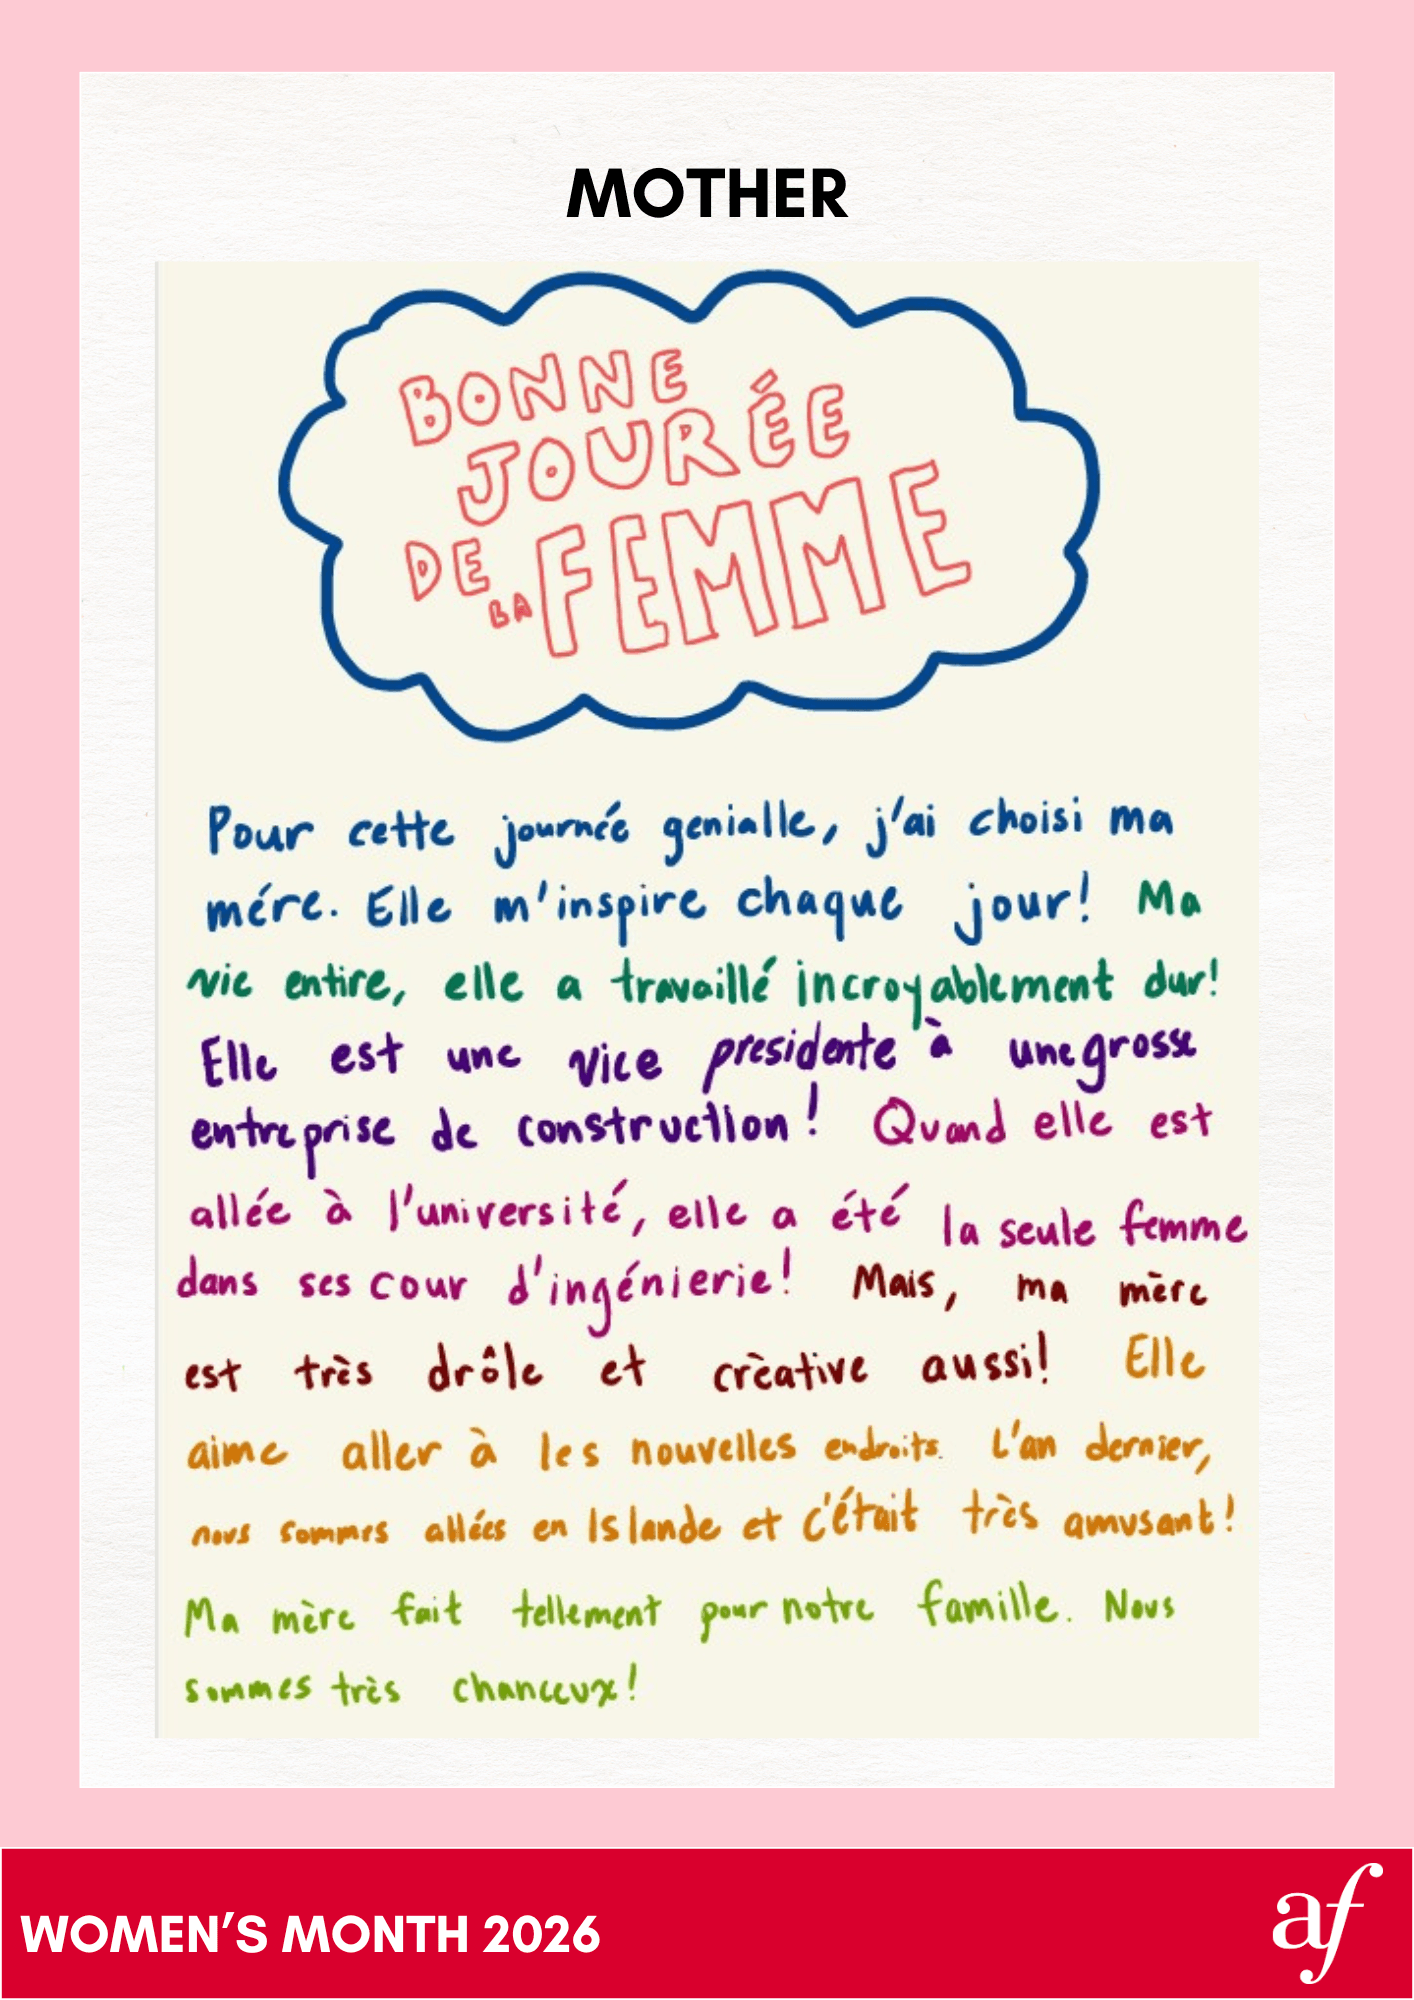 MOTHER
BONNE
JOURÉE
DE LA FEMME
Pour cette journée genialle, j'ai choisi ma
mére. Elle m'inspire chaque jour! Ma
vie entire, elle a travaillé incroyablement dur!
Elle est une vice presidente à une grosse
entreprise de construction! Quand elle est
allée à l'université, elle a été la seule femme
dans ses cour d'ingénierie! Mais, ma mère
est très drôle et crèative aussi! Elle
aime aller à les nouvelles endroits. L'an dernier,
nous sommes allées en Islande et c'était très amusant!
Ma mère fait tellement pour notre famille. Nous
sommes très chanceux!
WOMEN'S MONTH 2026
af